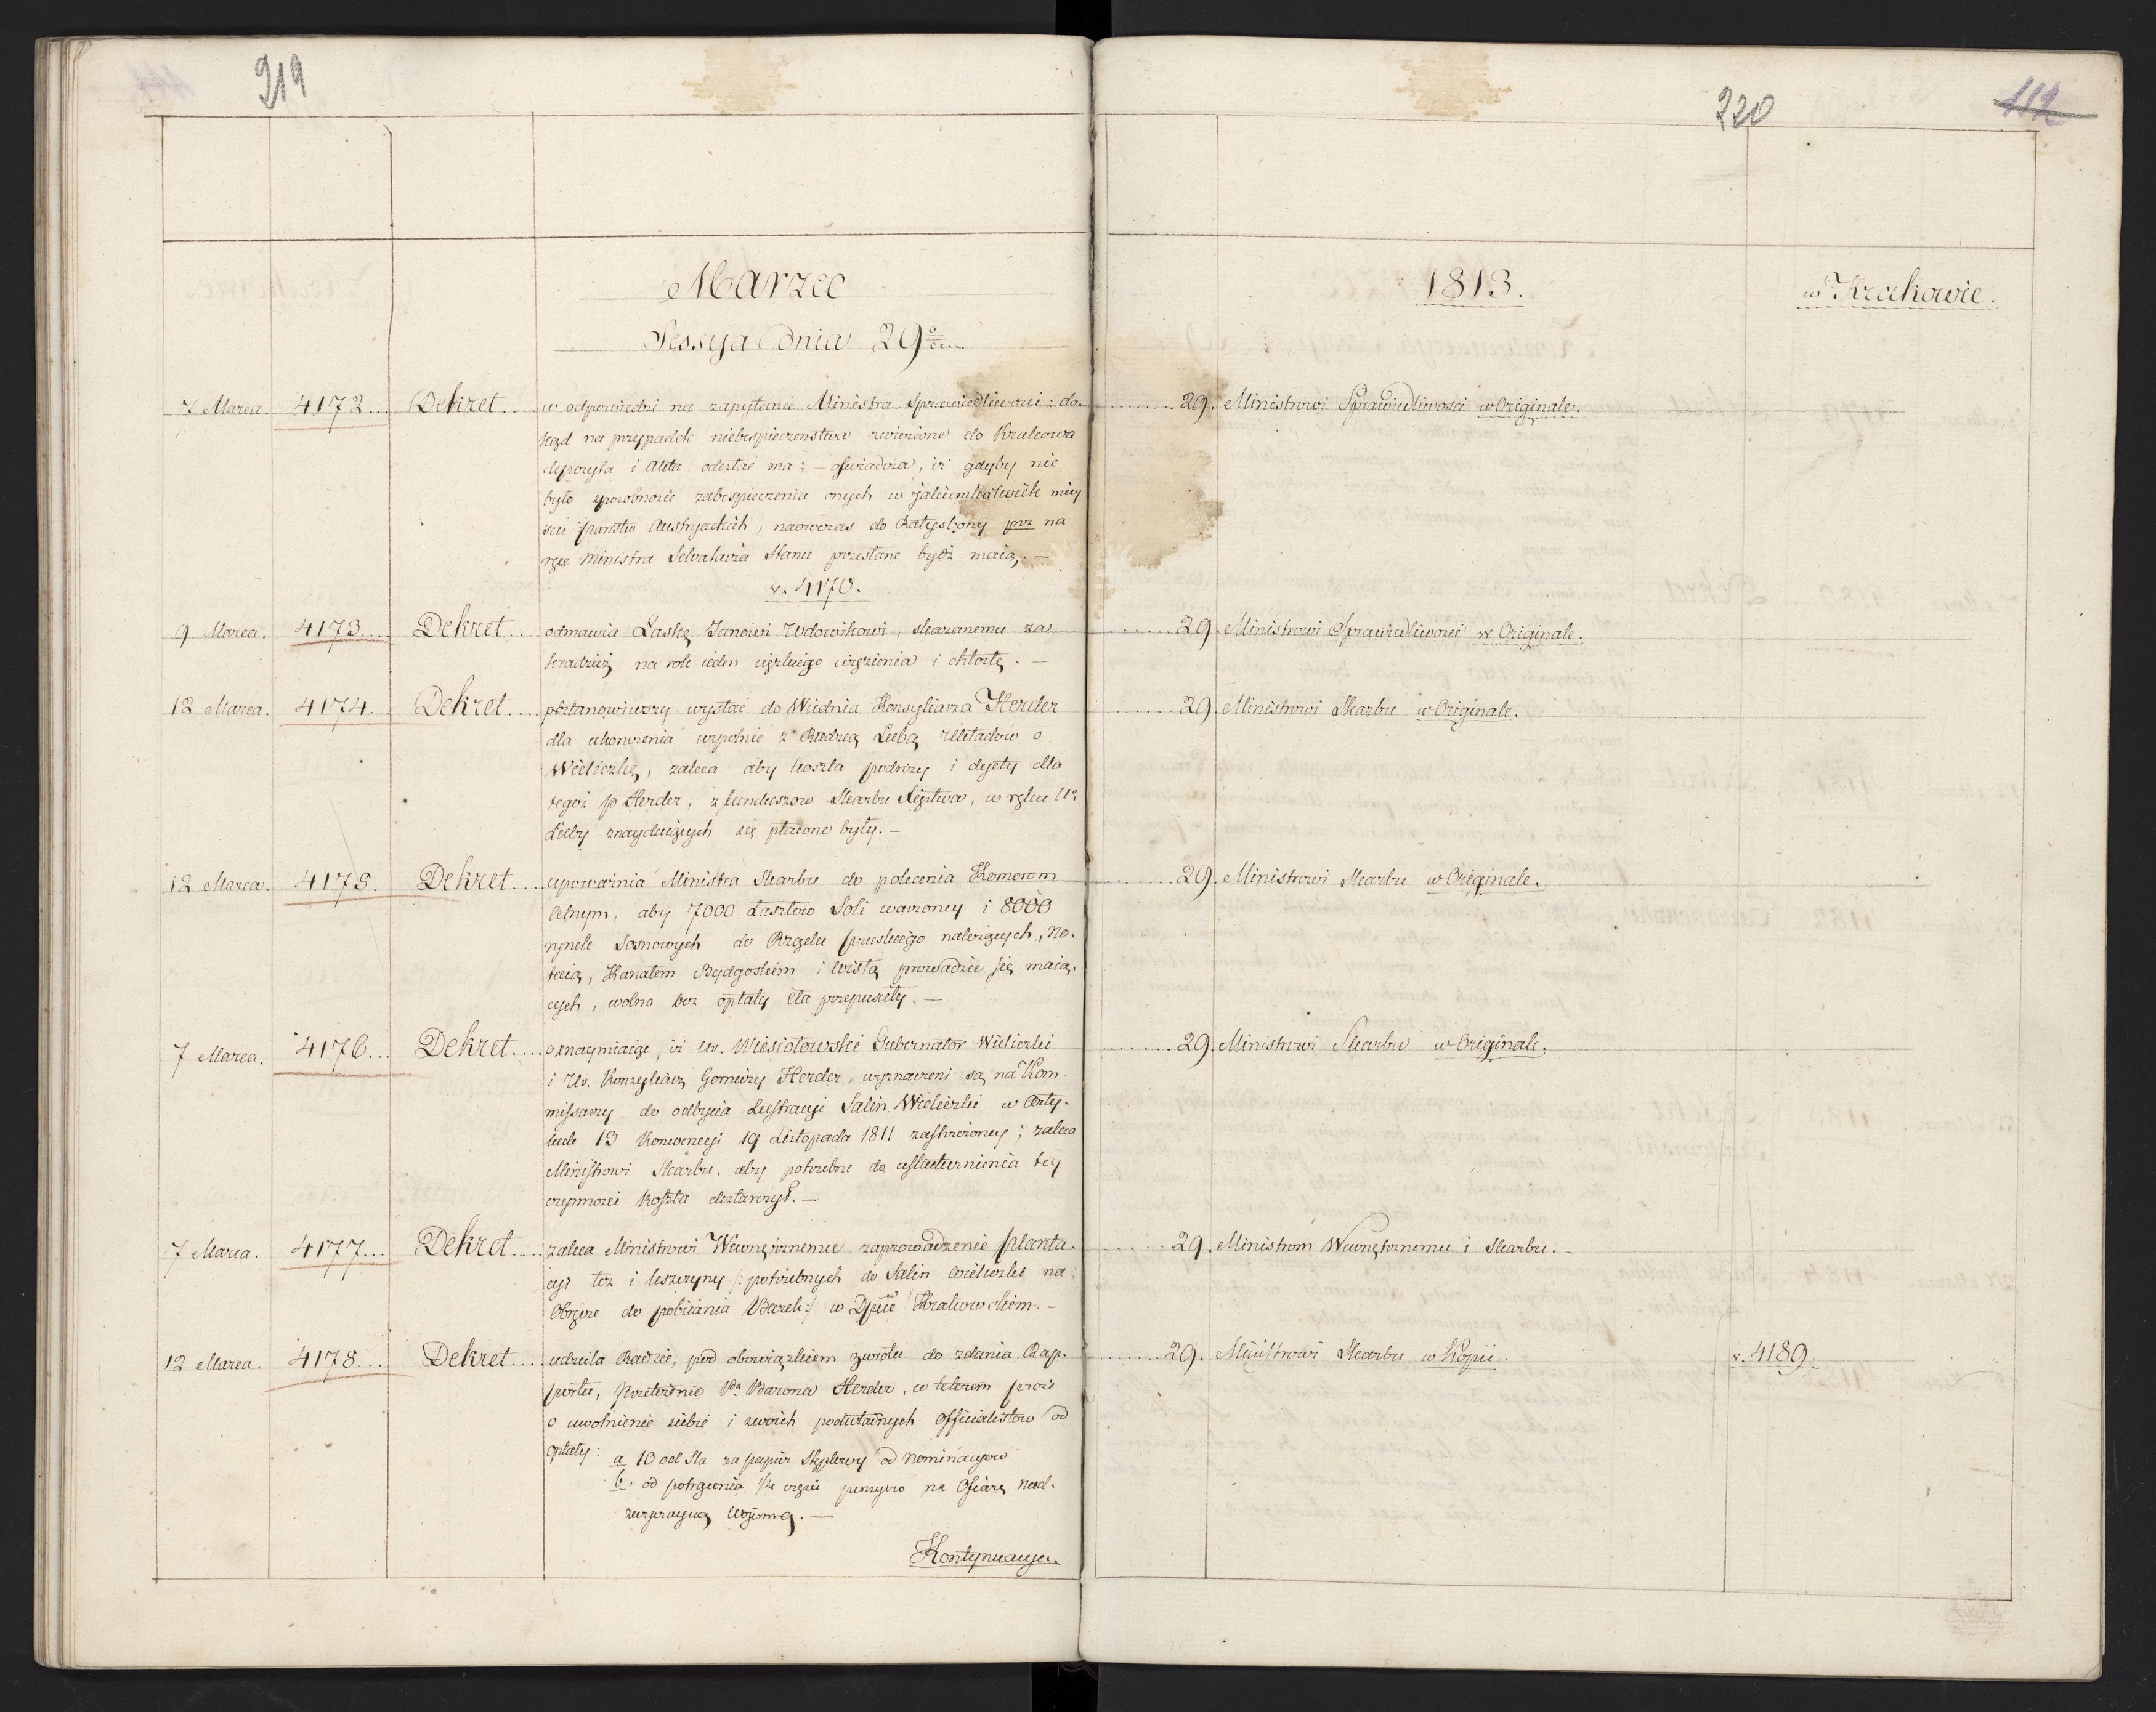 219
220
112
Marzec
1813.
w Krakowie.
Sessya dnia 29o
7 Marca. 4172... Dekret.... w odpowiedzi na zapytanie Ministra Sprawiedliwości: do-
kąd na przypadek niebespieczenstwa zwiezione do Krakowa
depozyta i Akta odesłać ma; – oświadcza, iż gdyby nie
było sposobności zabespieczenia onych w jakiemkolwiek miey
scu państw Austryackich, naowczas do Ratysbony na
ręce Ministra Sekretarza Stanu przesłane bydź maią. –
v. 4170.
29. Ministrowi Sprawiedliwości w Originale.
9 Marca. 4173... Dekret.... odmawia Łaskę Janowi Wdowikowi, skazanemu za
kradzież na rok ieden cięzkiego więzienia i chłostę. –
29. Ministrowi Sprawiedliwości w Originale.
12 Marca. 4174. Dekret.... postanowiwszy wysłać do Wiednia Konsyliarza Herder
dla ukonczenia wspolnie z Radzcą Lubą układow o
Wieliczkę, zaleca aby koszta podrozy i dyety dla
tegoż P Herder, z funduszow Skarbu Xięstwa, w ręku
Luby znayduiących się płacone były. –
29. Ministrowi Skarbu w Originale.
12 Marca. 4175. Dekret.... upoważnia Ministra Skarbu do polecenia Komorom
Celnym, aby 7000 Łasztow Soli warzoney i 8000
rynek Sosnowych do Rządu pruskiego należących, No-
tecią, Kanałem Bydgoskim i Wisłą prowadzić się maią-
cych, wolno bez opłaty Cła przepuściły. –
29. Ministrowi Skarbu w Originale.
7 Marca. 4176... Dekret.... oznaymiaiąc, iż Ur. Wiesiołowski Gubernator Wieliczki
i Ur. Konsyliarz Gorniczy Herder, wyznaczeni są na Kom-
missarzy do odbycia Lustracyi Salin Wieliczki w Arty-
kule 13 Konwencyi 19 Listopada 1811 zastrzeżoney; zaleca
Ministrowi Skarbu, aby potrzebne do uskutecznienia tey
czynności koszta dostarczył. –
29. Ministrowi Skarbu w Originale.
7 Marca. 4177... Dekret.... zaleca Ministrowi Wewnętrznemu zaprowadzenie planta-
cyi łoz i leszczyny /: potrzebnych do Salin Wieliczki na
Obręcze do pobiiania Beczek :/ w Dpcie Krakowskiem. –
29. Ministrom Wewnętrznemu i Skarbu. –
12 Marca. 4178... Dekret.... udziela Radzie, pod obowiązkiem zwrotu do zdania Rap-
portu, Przełożenie Barona Herder, w ktorem prosi
o uwolnienie siebie i swoich podwładnych Officialistow od
opłaty:
a 10 od Sta za papier Stęplowy od Nominacyow
b. od potrącenia 1/4 części pensyow na Ofiarę nad-
zwyczayną Woienną. –
29. Ministrowi Skarbu w Kopii.
v. 4189.
Kontynuacya.